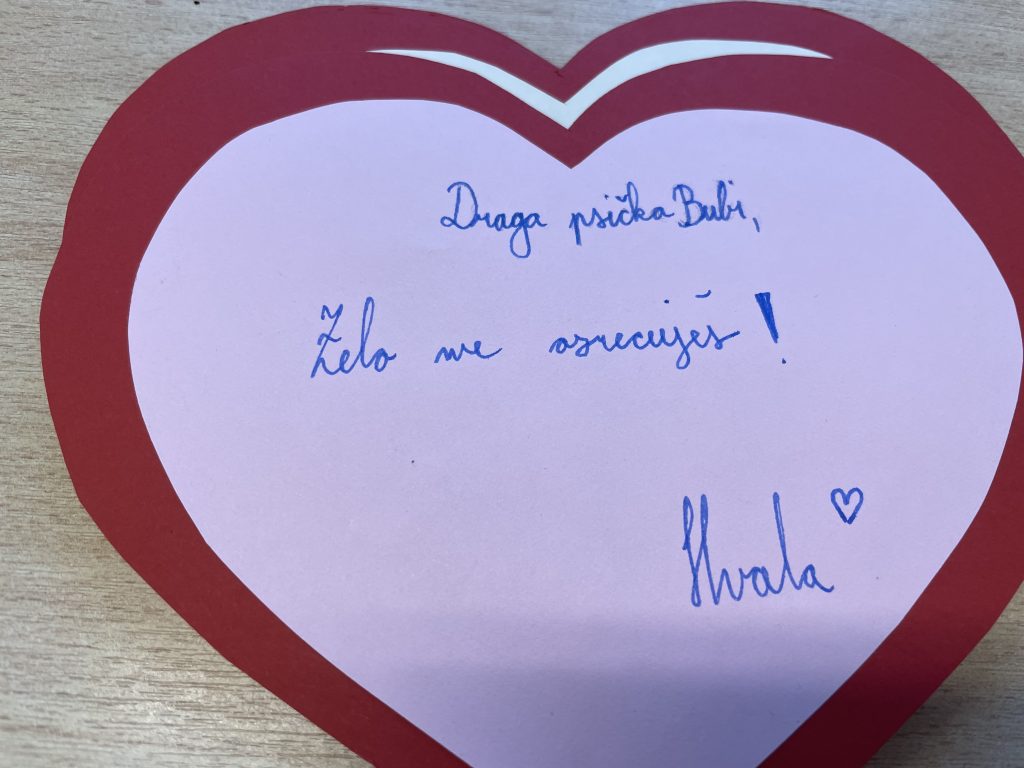 Draga psička Bubi,
Zelo me osrecuješ!
Hvala ♡